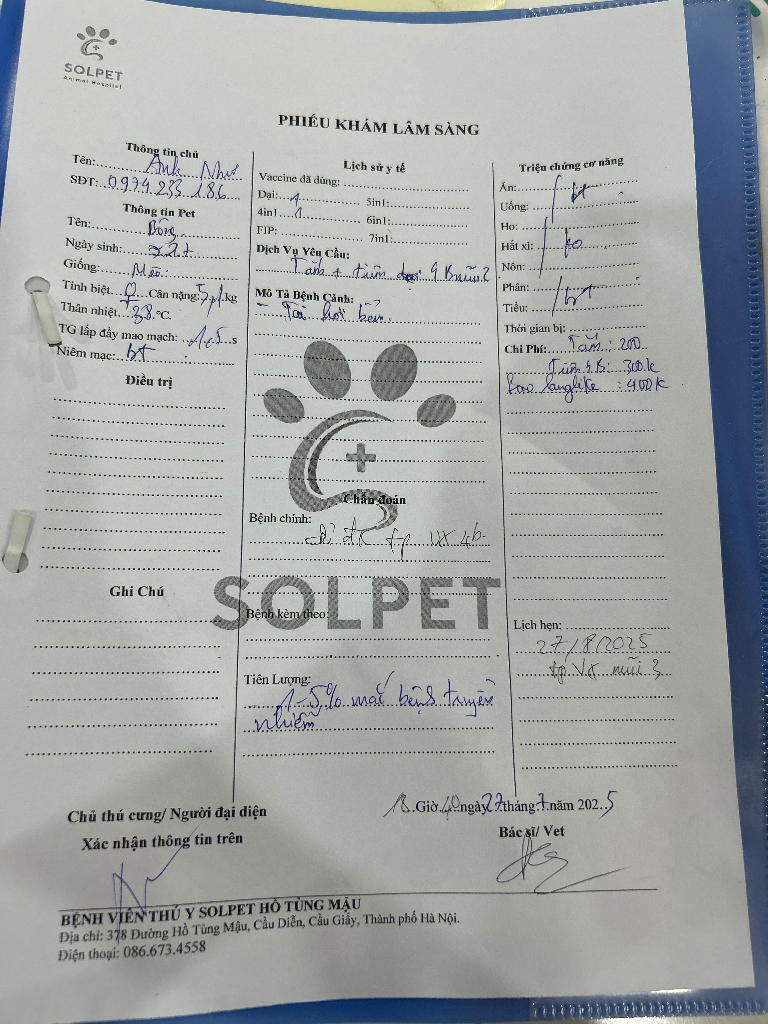 SOLPET
Animal Hospital
PHIẾU KHÁM LÂM SÀNG
Thông tin chủ
Tên: Anh Như
SĐT: 0974 233 186
Thông tin Pet
Tên: Bông
Ngày sinh: 22t
Giống: Mèo
Tính biệt ♀ Cân nặng: 5,1 kg
Thân nhiệt: 38 °C.
TG lấp đầy mao mạch: 1-1,5 s
Niêm mạc: bt
Điều trị
Ghi Chú
Lịch sử y tế
Vaccine đã dùng:
Dại: 1 5in1:
4in1 1 6in1:
FIP: 7in1:
Dịch Vụ Yêu Cầu:
Tắm + tiêm dại 4B mũi 2
Mô Tả Bệnh Cảnh:
- Tai hơi bẩn
Chẩn đoán
Bệnh chính:
đủ đk tp VX 4b
SOLPET
Bệnh kèm theo:
Tiên Lượng:
1-5% mắc bệnh truyền
nhiễm
Triệu chứng cơ năng
Ăn: bt
Uống:
Ho:
Hắt xì: ko
Nôn:
Phân: bt
Tiểu:
Thời gian bị:
Chi Phí: Tắm: 200
Tiêm 4B: 300k
: 400k
Lịch hẹn:
27/8/2025
tp VX mũi 3
18 Giờ 40 ngày 27 tháng 7 năm 2025
Chủ thú cưng/ Người đại diện
Xác nhận thông tin trên
Bác sĩ/ Vet
BỆNH VIỆN THÚ Y SOLPET HỒ TÙNG MẬU
Địa chỉ: 378 Đường Hồ Tùng Mậu, Cầu Diễn, Cầu Giấy, Thành phố Hà Nội.
Điện thoại: 086.673.4558